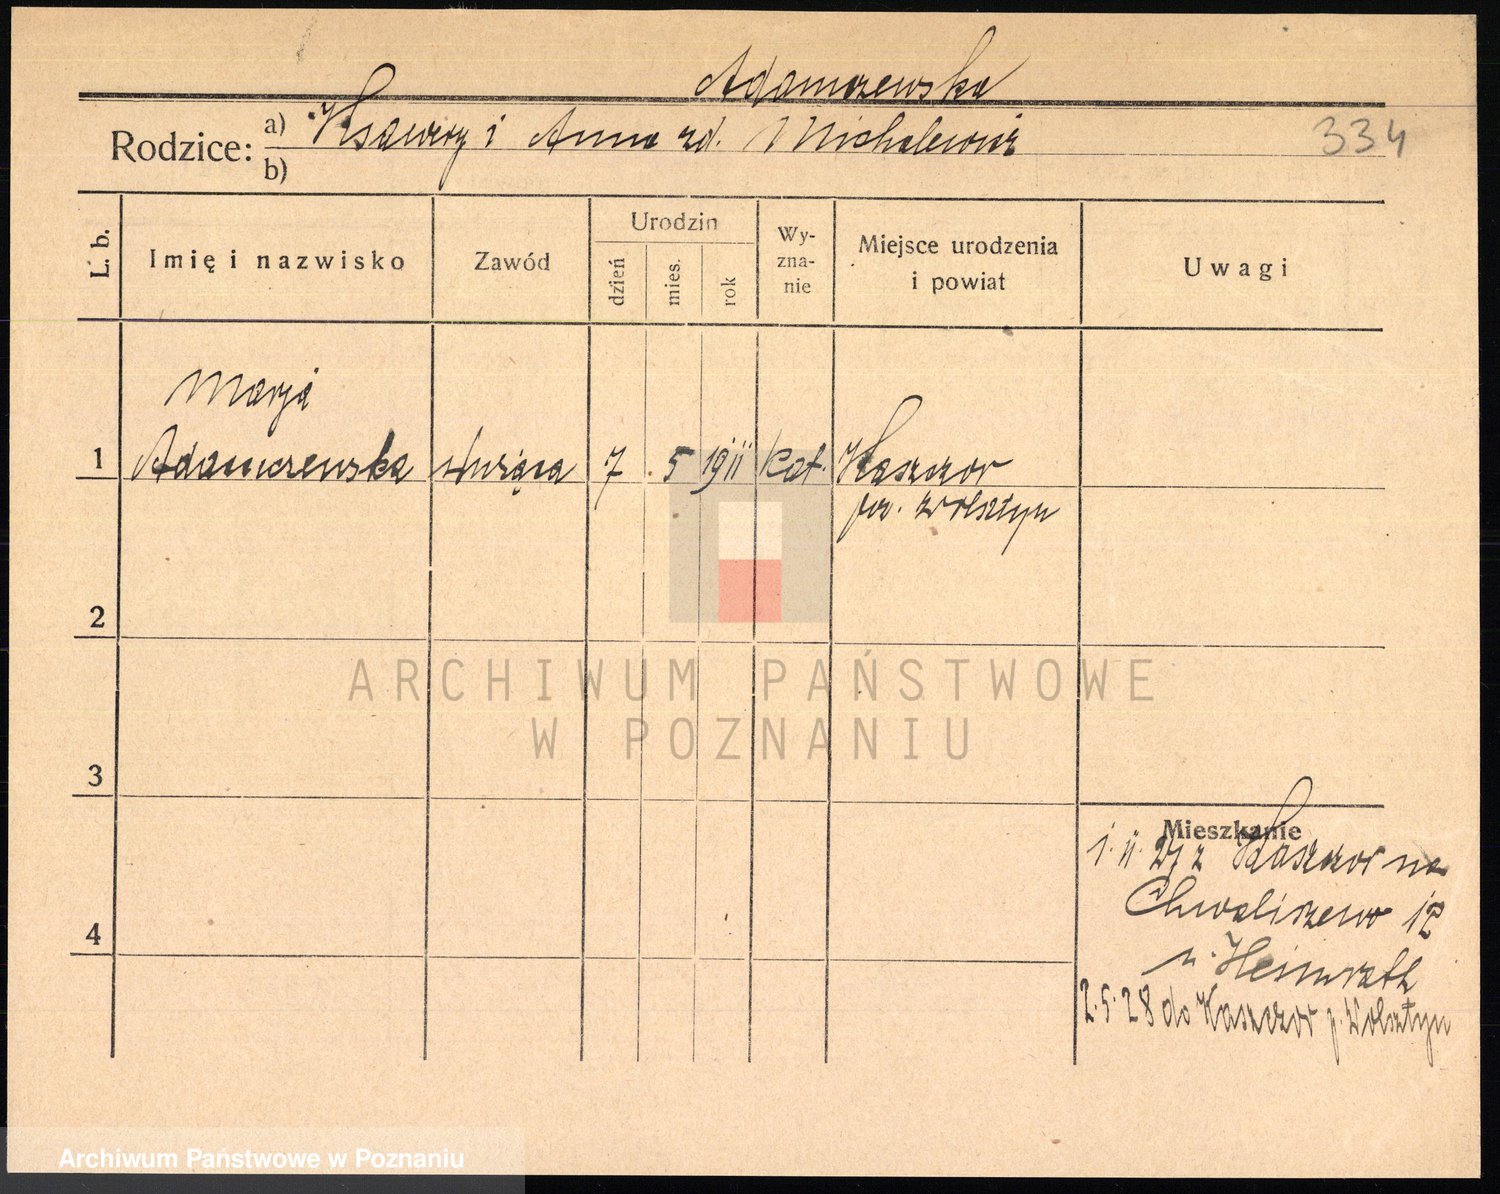 Adamczewska
Rodzice: a) Ksawery i Anna zd. Michalewicz
b)
334
L. b.
Imię i nazwisko
Zawód
Urodzin
dzień
mies.
rok
Wy-
zna-
nie
Miejsce urodzenia
i powiat
Uwagi
Marja
1 Adamczewska służąca 7 5 1911 kat. Kaszczor
pow. Wolsztyn
2
3
4
Mieszkanie
1. 11. 27 z Kaszczor na
Chwaliszewo 12
u. Heinrath
2. 5. 28 do Kaszczor p. Wolsztyn
ARCHIWUM PAŃSTWOWE
W POZNANIU
Archiwum Państwowe w Poznaniu